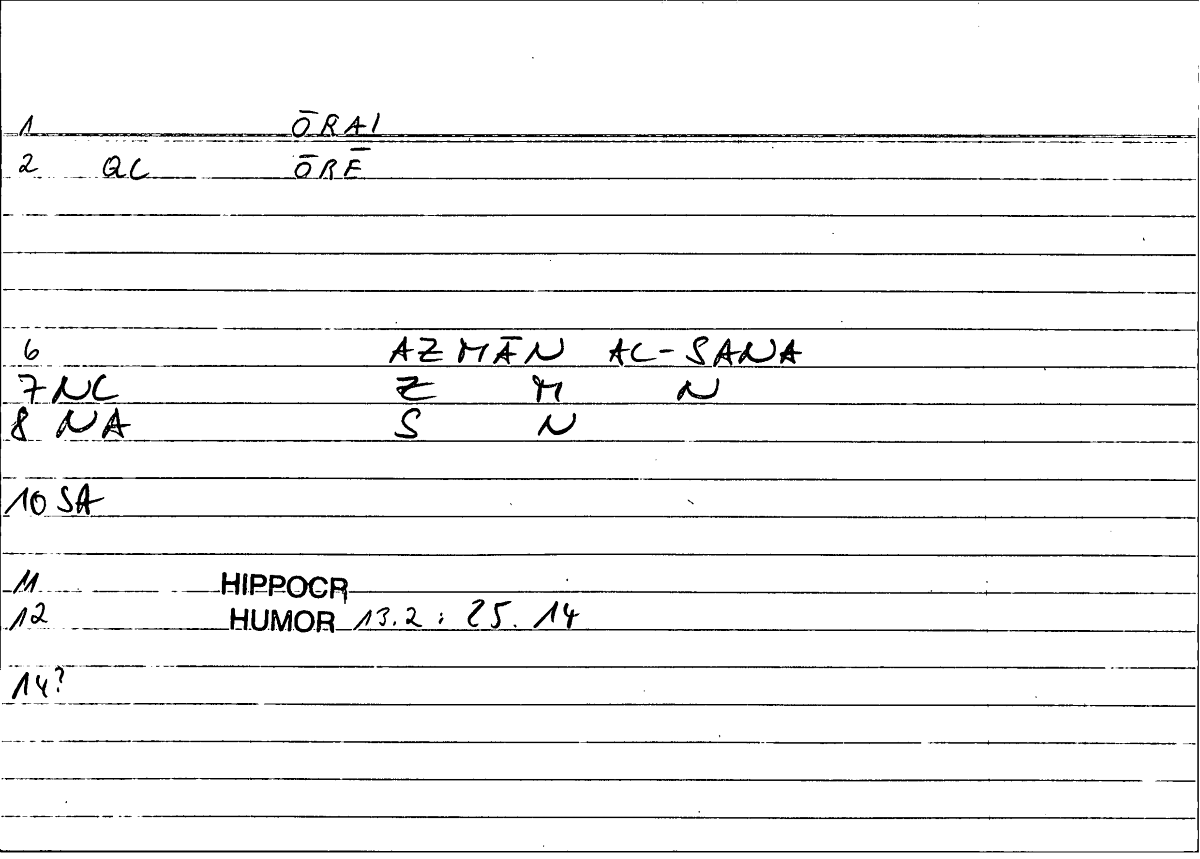 1 ŌRAI
2 QC ŌRĒ
6 AZMĀN AL-SANA
7 NC Z M N
8 NA S N
10 SA
11 HIPPOCR
12 HUMOR 13.2 : 25.14
14?